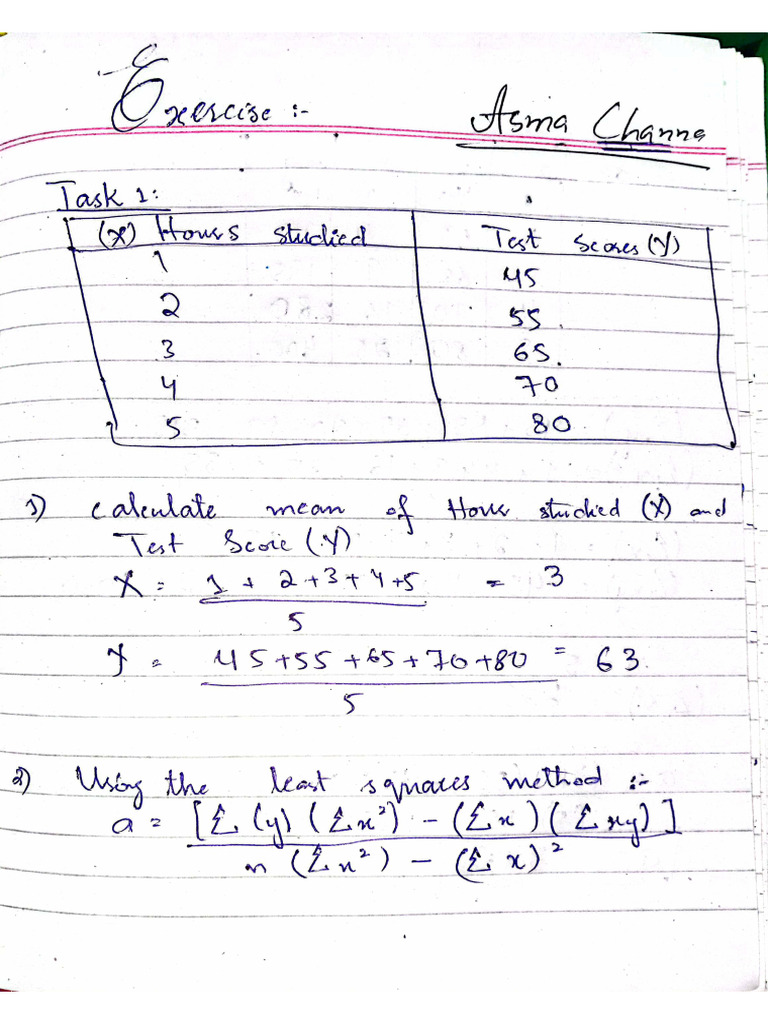 Exercise :- Asma Channa
Task 1:
(X) Hours studied Test Scores (Y)
1 45
2 55.
3 65.
4 70
5 80.
1) Calculate mean of Hours studied (X) and
Test Score (Y)
X = 1 + 2 + 3 + 4 + 5 = 3
5
Y = 45 + 55 + 65 + 70 + 80 = 63.
5
2) Using the least squares method :-
a = [Σ(y) (Σx²) - (Σx) (Σxy)]
n (Σx²) - (Σx)²